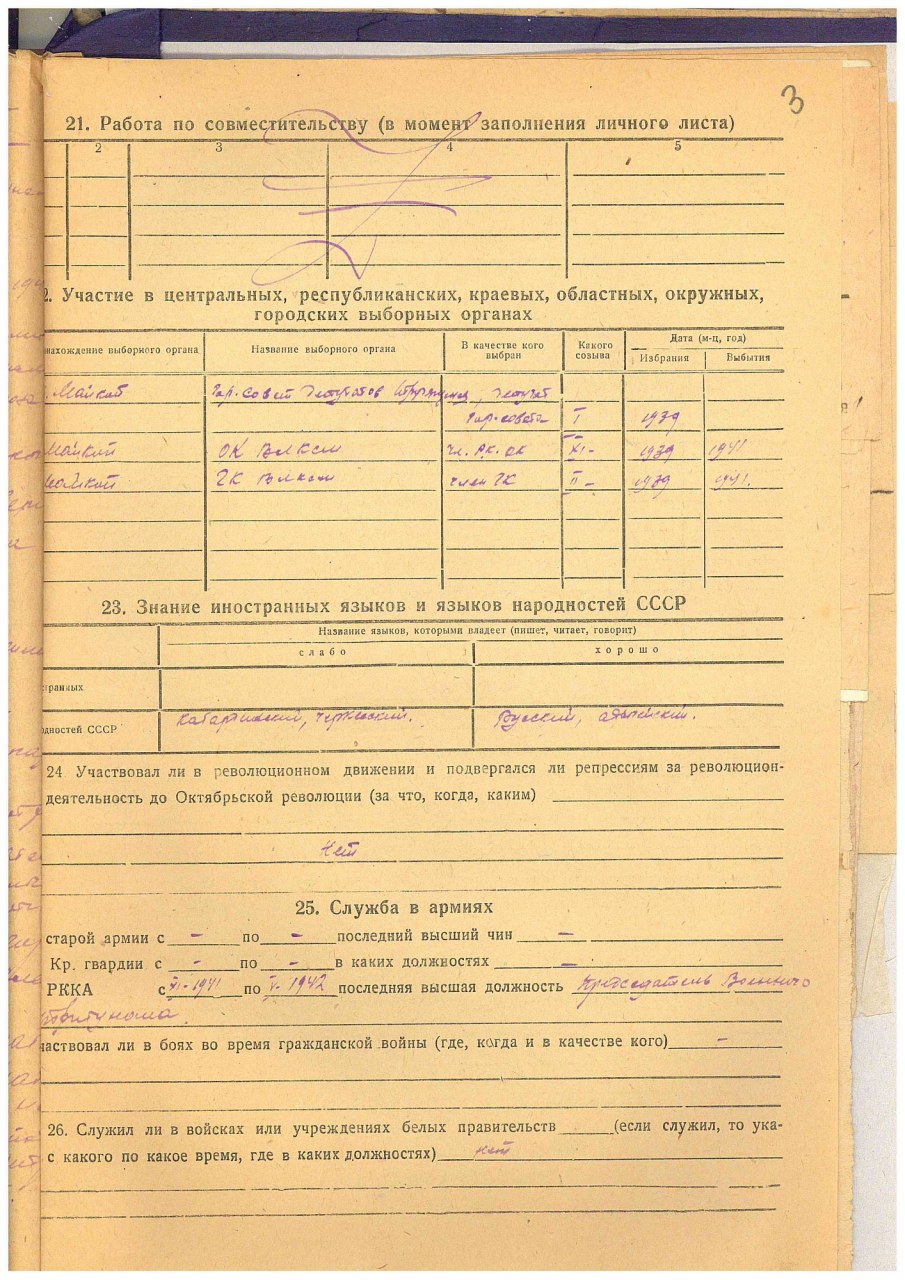 3
21. Работа по совместительству (в момент заполнения личного листа)
2 3 4 5
2. Участие в центральных, республиканских, краевых, областных, окружных,
городских выборных органах
нахождение выборного органа Название выборного органа В качестве кого выбран Какого созыва Дата (м-ц, год)
Избрания Выбытия
Майкоп Гор. Совет Депутатов Трудящихся, Депутат
Гор-совета I 1939
Майкоп ОК ВЛКСМ чл. ОК XI- 1939 1941
Майкоп ГК ВЛКСМ член ГК II- 1939 1941.
23. Знание иностранных языков и языков народностей СССР
Название языков, которыми владеет (пишет, читает, говорит)
слабо хорошо
странных
одностей СССР Кабардинский, черкесский. Русский, адыгейский.
24. Участвовал ли в революционном движении и подвергался ли репрессиям за революцион-
деятельность до Октябрьской революции (за что, когда, каким)
Нет
25. Служба в армиях
старой армии с – по – последний высший чин –
Кр. гвардии с – по – в каких должностях –
РККА с XI-1941 по V-1942 последняя высшая должность Председатель Военного
трибунала.
частвовал ли в боях во время гражданской войны (где, когда и в качестве кого) –
26. Служил ли в войсках или учреждениях белых правительств (если служил, то ука-
с какого по какое время, где в каких должностях) нет